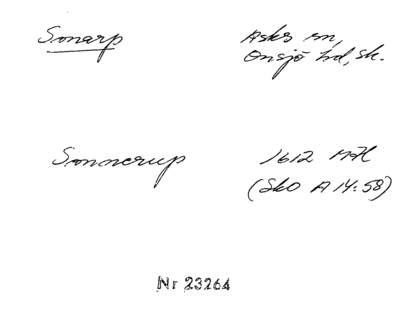 Sonarp
Asks sn,
Onsjö hd, sk.
Sonnerup
1612 MH
(SkO A 14:58)
Nr 23264